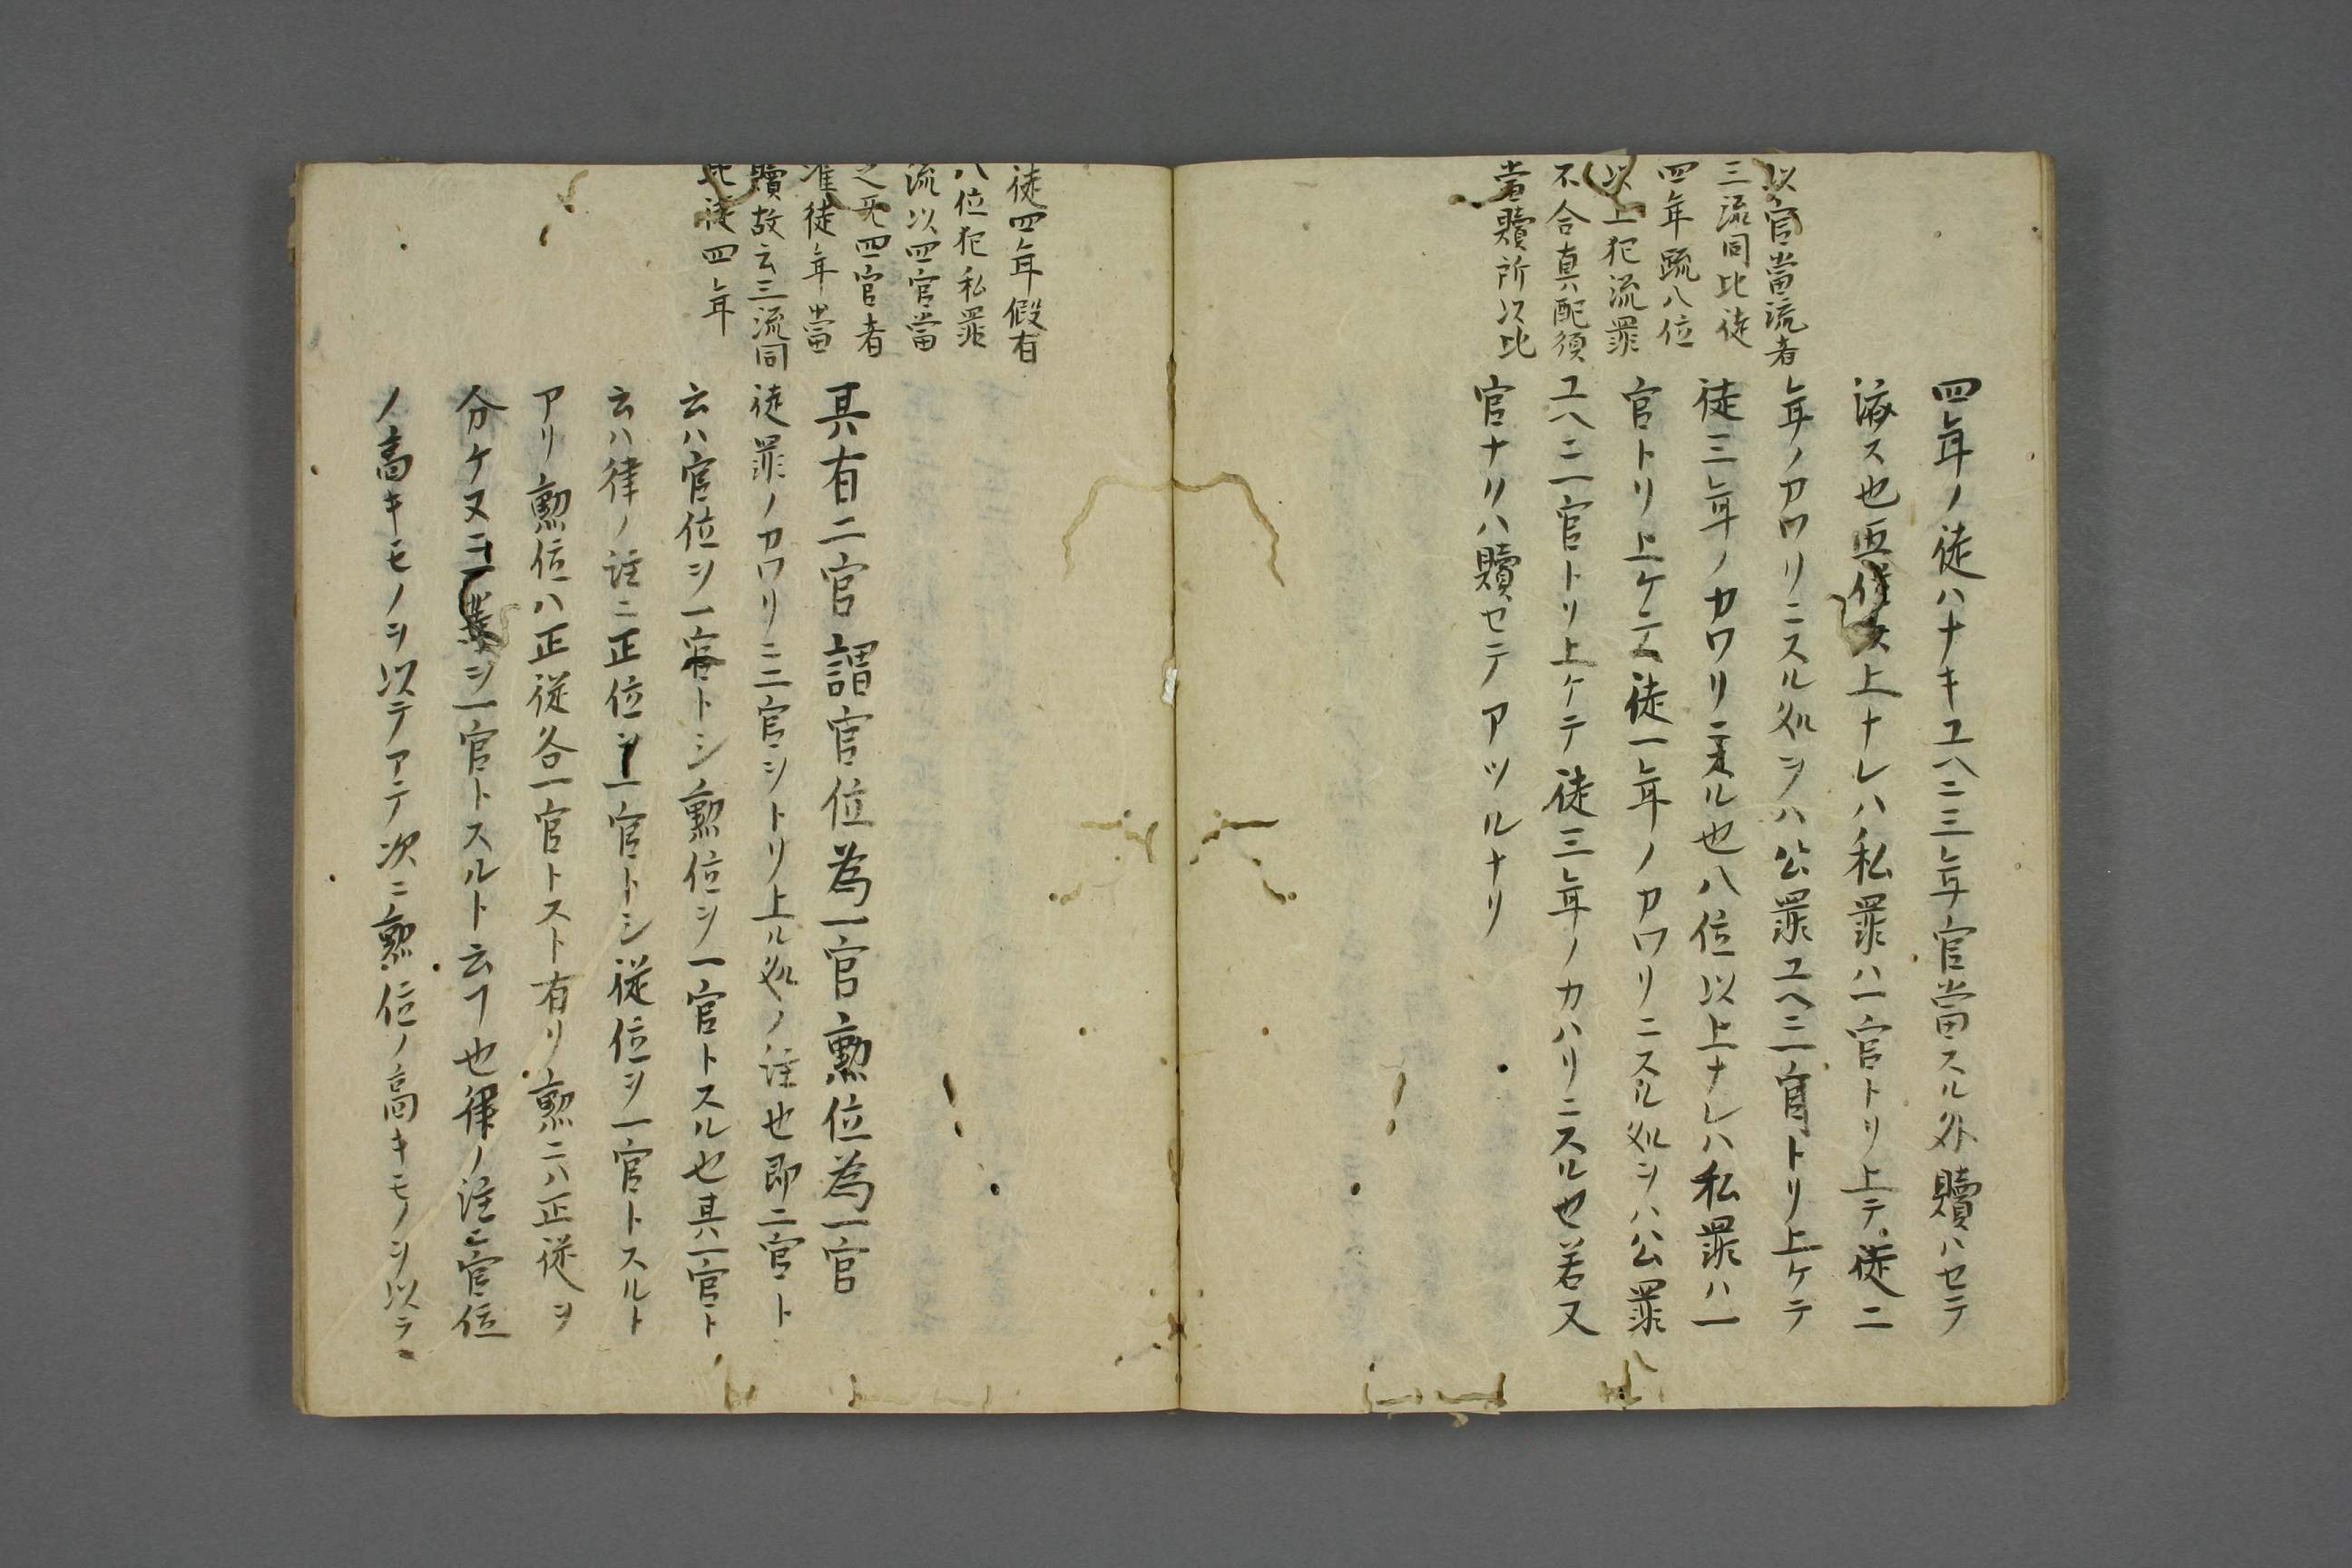 以官當流者
三流同比徒
四年疏八位
以上犯流罪
不合真配須
當贖所以比
四年ノ徒ハナキユヘニ三年官當スル外贖ハセテ
上ナレハ私罪ハ一官トリ上テ徒二
年ノカワリニスル処ヲハ公罪ユヘ三一官トリ上ケテ
徒三年ノカワリニスル也八位以上ナレハ私罪ハ一
官トリ上ケテ徒一年ノカワリニスル処ヲハ公罪
ユヘニ一官トリ上ケテ徒三年ノカハリニスル也若又
官ナリハ贖セテアツルナリ
徒四年假有
八位犯私罪
流以四官當
之无四官者
准徒年當
贖故云三流同
比徒四年
其有二官謂官位為一官勲位為一官
徒罪ノカワリニ二官ヲトリ上ル処ノ註也即二官ト
云ハ官位ヲ一官トシ勲位ヲ一官トスル也其一官ト
云ハ律ノ註ニ正位ヲ一官トシ従位ヲ一官トスルト
アリ勲位ハ正従各一官トスト有リ勲ニハ正従ヲ
分ケヌ ヲ一官トスルト云フ也律ノ註ニ官位
ノ高キモノヲ以テアテ次ニ勲位ノ高キモノヲ以テ